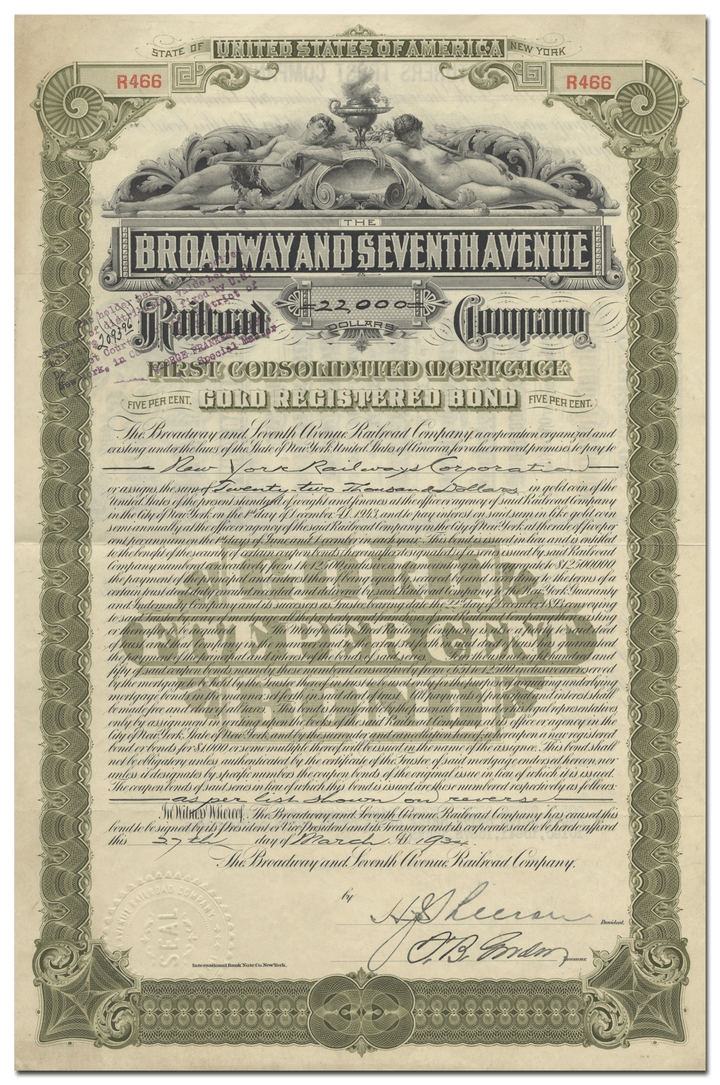 STATE OF UNITED STATES OF AMERICA NEW YORK
R466 R466
THE
BROADWAY AND SEVENTH AVENUE
Railroad 22,000 Company
DOLLARS
209396
FIRST CONSOLIDATED MORTGAGE
FIVE PER CENT. GOLD REGISTERED BOND FIVE PER CENT.
The Broadway and Seventh Avenue Railroad Company, a corporation organized and
existing under the laws of the State of New York, United States of America for value received promises to pay to
New York Railways Corporation
or assigns, the sum of Twenty-two Thousand Dollars in gold coin of the
United States of the present standard of weight and fineness at the office or agency of said Railroad Company
in the City of New York on the 1st day of December A.D. 1943, and to pay interest on said sum in like gold coin
semi annually at the office or agency of the said Railroad Company in the City of New York at the rate of five per
cent per annum on the 1st days of June and December in each year. This bond is issued in lieu and is entitled
to the benefit of the security of certain coupon bonds thereinafter designated of a series issued by said Railroad
Company numbered consecutively from 1 to 12,500 inclusive amounting in the aggregate to $12,500,000,
the payment of the principal and interest thereof being equally secured by and according to the terms of a
certain trust deed duly executed and delivered by said Railroad Company to the New York Guaranty
and Indemnity Company and its successors as Trustee bearing date the 22nd day of December 1893 conveying
to said Trustee
or thereafter to be acquired. The Metropolitan Street Railway Company is also a party to said deed
of trust and that Company in the manner and to the extent set forth in said deed of trust has guaranteed
the payment of the principal and interest of the bonds of said series. Four thousand eight hundred and
fifty of said coupon bonds, namely those numbered consecutively from 7651 to 12,500 inclusive are reserved
by the mortgage
mortgage bonds in the manner set forth in said deed of trust. All payments of principal and interest shall
be made free and clear of all taxes. This bond is transferable by the owner
only by assignment in writing upon the books of the said Railroad Company at its office or agency in the
City of New York, State of New York and by the surrender and cancellation hereof and thereupon a new registered
bond or bonds for $1000 or some multiple thereof will be issued in the name of the assignee. This bond shall
not be obligatory unless authenticated by the certificate of the Trustee of said mortgage endorsed hereon, nor
unless it designates by specific numbers the coupon bonds of the original issue in lieu of which it is issued.
The coupon bonds of said series in lieu of which this bond is issued are those numbered respectively as follows:
as per list shown on reverse
In Witness Whereof, The Broadway and Seventh Avenue Railroad Company has caused this
bond to be signed by its President or Vice President and its Treasurer and its corporate seal to be hereto affixed
this 27th day of March A.D.
The Broadway and Seventh Avenue Railroad Company.
by H J Sheeran President.
SEAL
International Bank Note Co. New York.